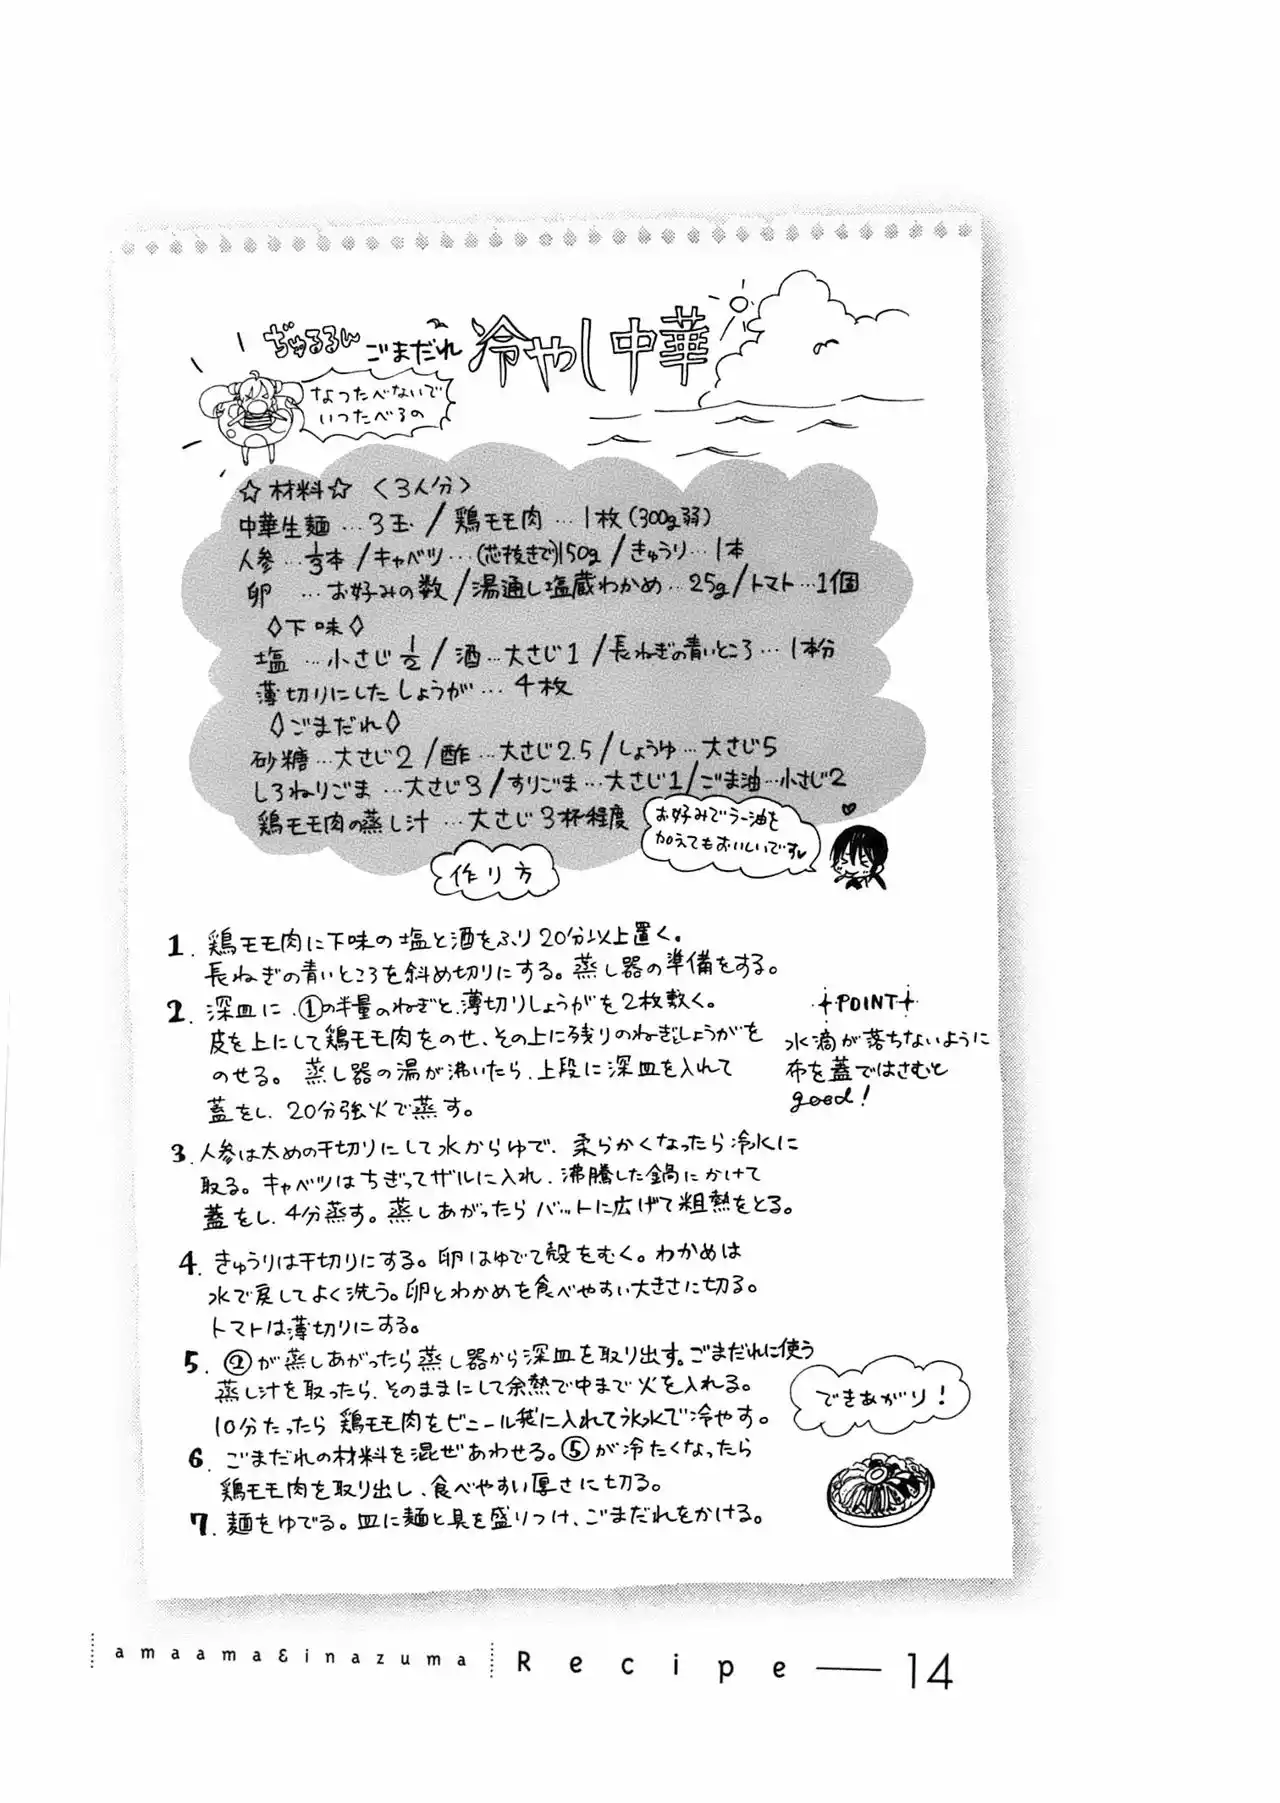 ぢゅるるん ごまだれ 冷やし中華
なつたべないで
いつたべるの
☆材料☆ 〈3人分〉
中華生麺…3玉/鶏モモ肉…1枚(300g弱)
人参…1/3本/キャベツ…(芯抜きで)150g/きゅうり…1本
卵…お好みの数/湯通し塩蔵わかめ…25g/トマト…1個
◇下味◇
塩…小さじ1/2/酒…大さじ1/長ねぎの青いところ…1本分
薄切りにしたしょうが…4枚
◇ごまだれ◇
砂糖…大さじ2/酢…大さじ2.5/しょうゆ…大さじ5
しろねりごま…大さじ3/すりごま…大さじ1/ごま油…小さじ2
鶏モモ肉の蒸し汁…大さじ3杯程度
お好みでラー油を
加えてもおいしいです♥
作り方
1. 鶏モモ肉に下味の塩と酒をふり20分以上置く。
長ねぎの青いところを斜め切りにする。蒸し器の準備をする。
2. 深皿に、①の半量のねぎと、薄切りしょうがを2枚敷く。
皮を上にして鶏モモ肉をのせ、その上に残りのねぎとしょうがを
のせる。蒸し器の湯が沸いたら、上段に深皿を入れて
蓋をし、20分強火で蒸す。
+POINT+
水滴が落ちないように
布を蓋ではさむと
good!
3. 人参は太めの千切りにして水からゆで、柔らかくなったら冷水に
取る。キャベツはちぎってザルに入れ、沸騰した鍋にかけて
蓋をし、4分蒸す。蒸しあがったらバットに広げて粗熱をとる。
4. きゅうりは千切りにする。卵はゆでて殻をむく。わかめは
水で戻してよく洗う。卵とわかめを食べやすい大きさに切る。
トマトは薄切りにする。
5. ②が蒸しあがったら蒸し器から深皿を取り出す。ごまだれに使う
蒸し汁を取ったら、そのままにして余熱で中まで火を入れる。
10分たったら鶏モモ肉をビニール袋に入れて氷水で冷やす。
6. ごまだれの材料を混ぜあわせる。⑤が冷たくなったら
鶏モモ肉を取り出し、食べやすい厚さに切る。
7. 麺をゆでる。皿に麺と具を盛りつけ、ごまだれをかける。
できあがり!
amaama&inazuma Recipe — 14